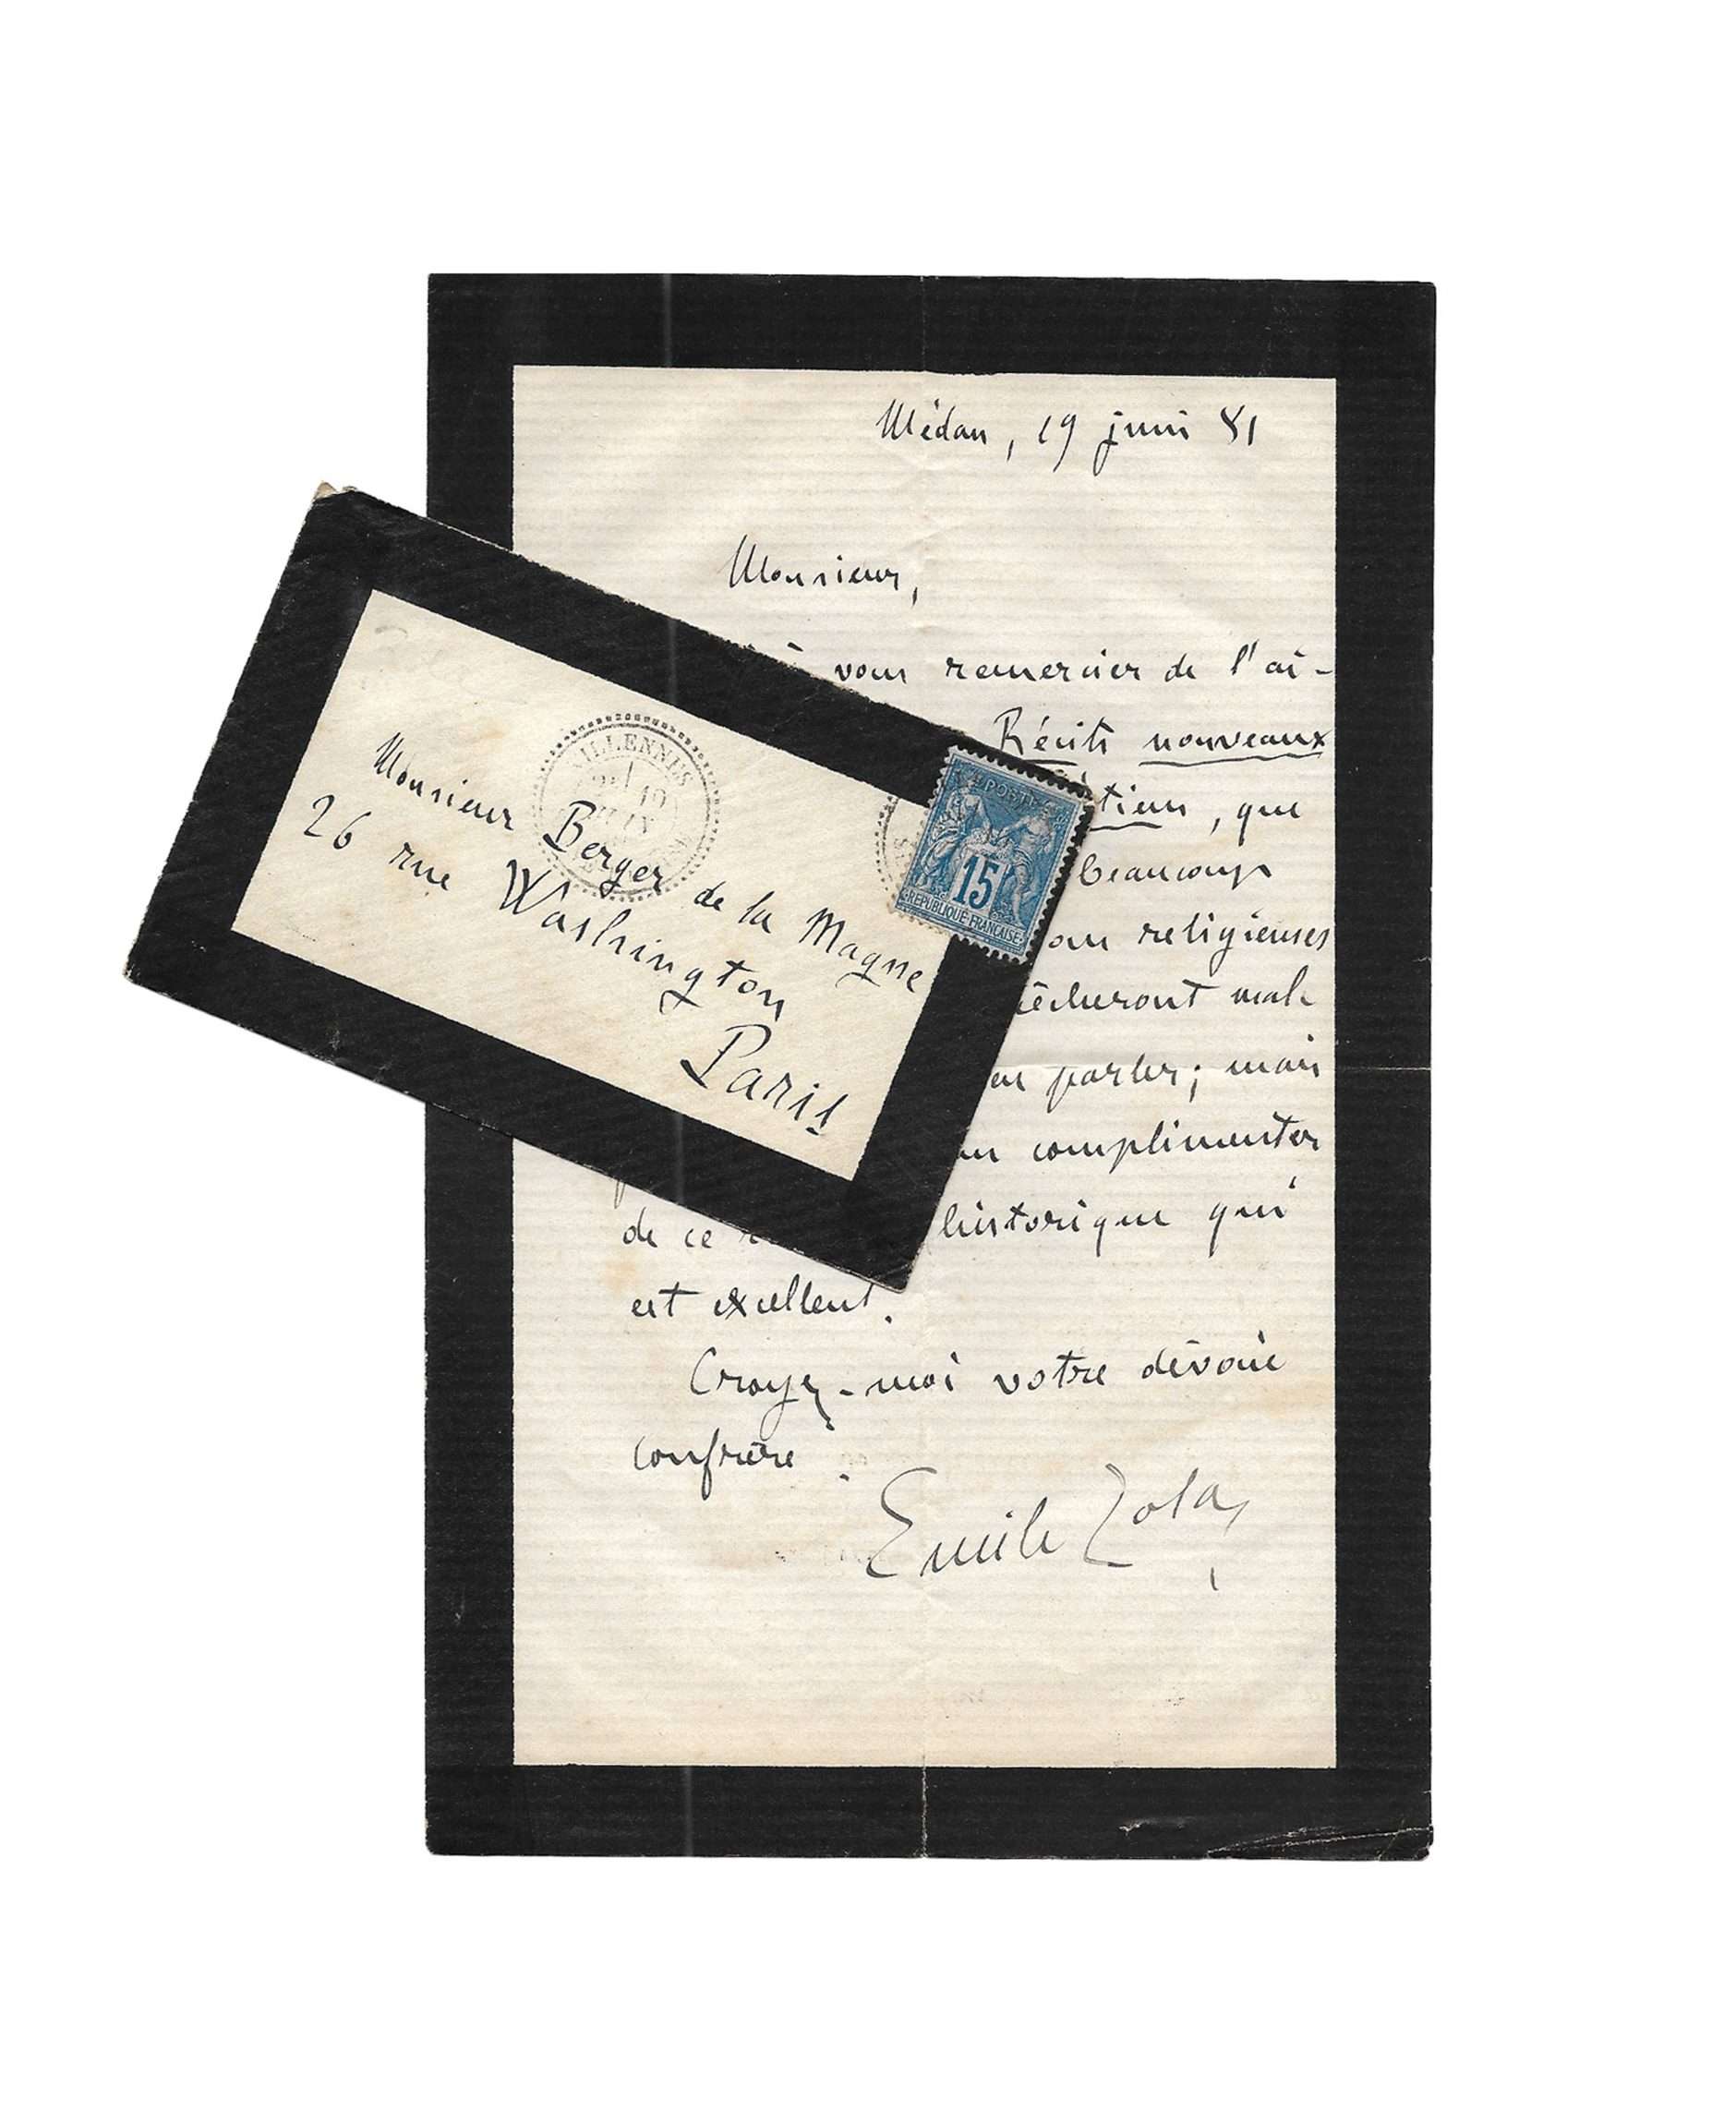 Médan, 19 juin 81
Monsieur,
vous remercier de l'ai-
Récits nouveaux
tien, que
beaucoup
ou religieuses
mal
en parler; mais
complimenter
de ce historique qui
est excellent.
Croyez-moi votre dévoué
confrère.
Emile Zola
Monsieur Berger de la Magne
26 rue Washington
Paris
VILLENNES
19
JUIN
POSTES
15
REPUBLIQUE FRANCAISE